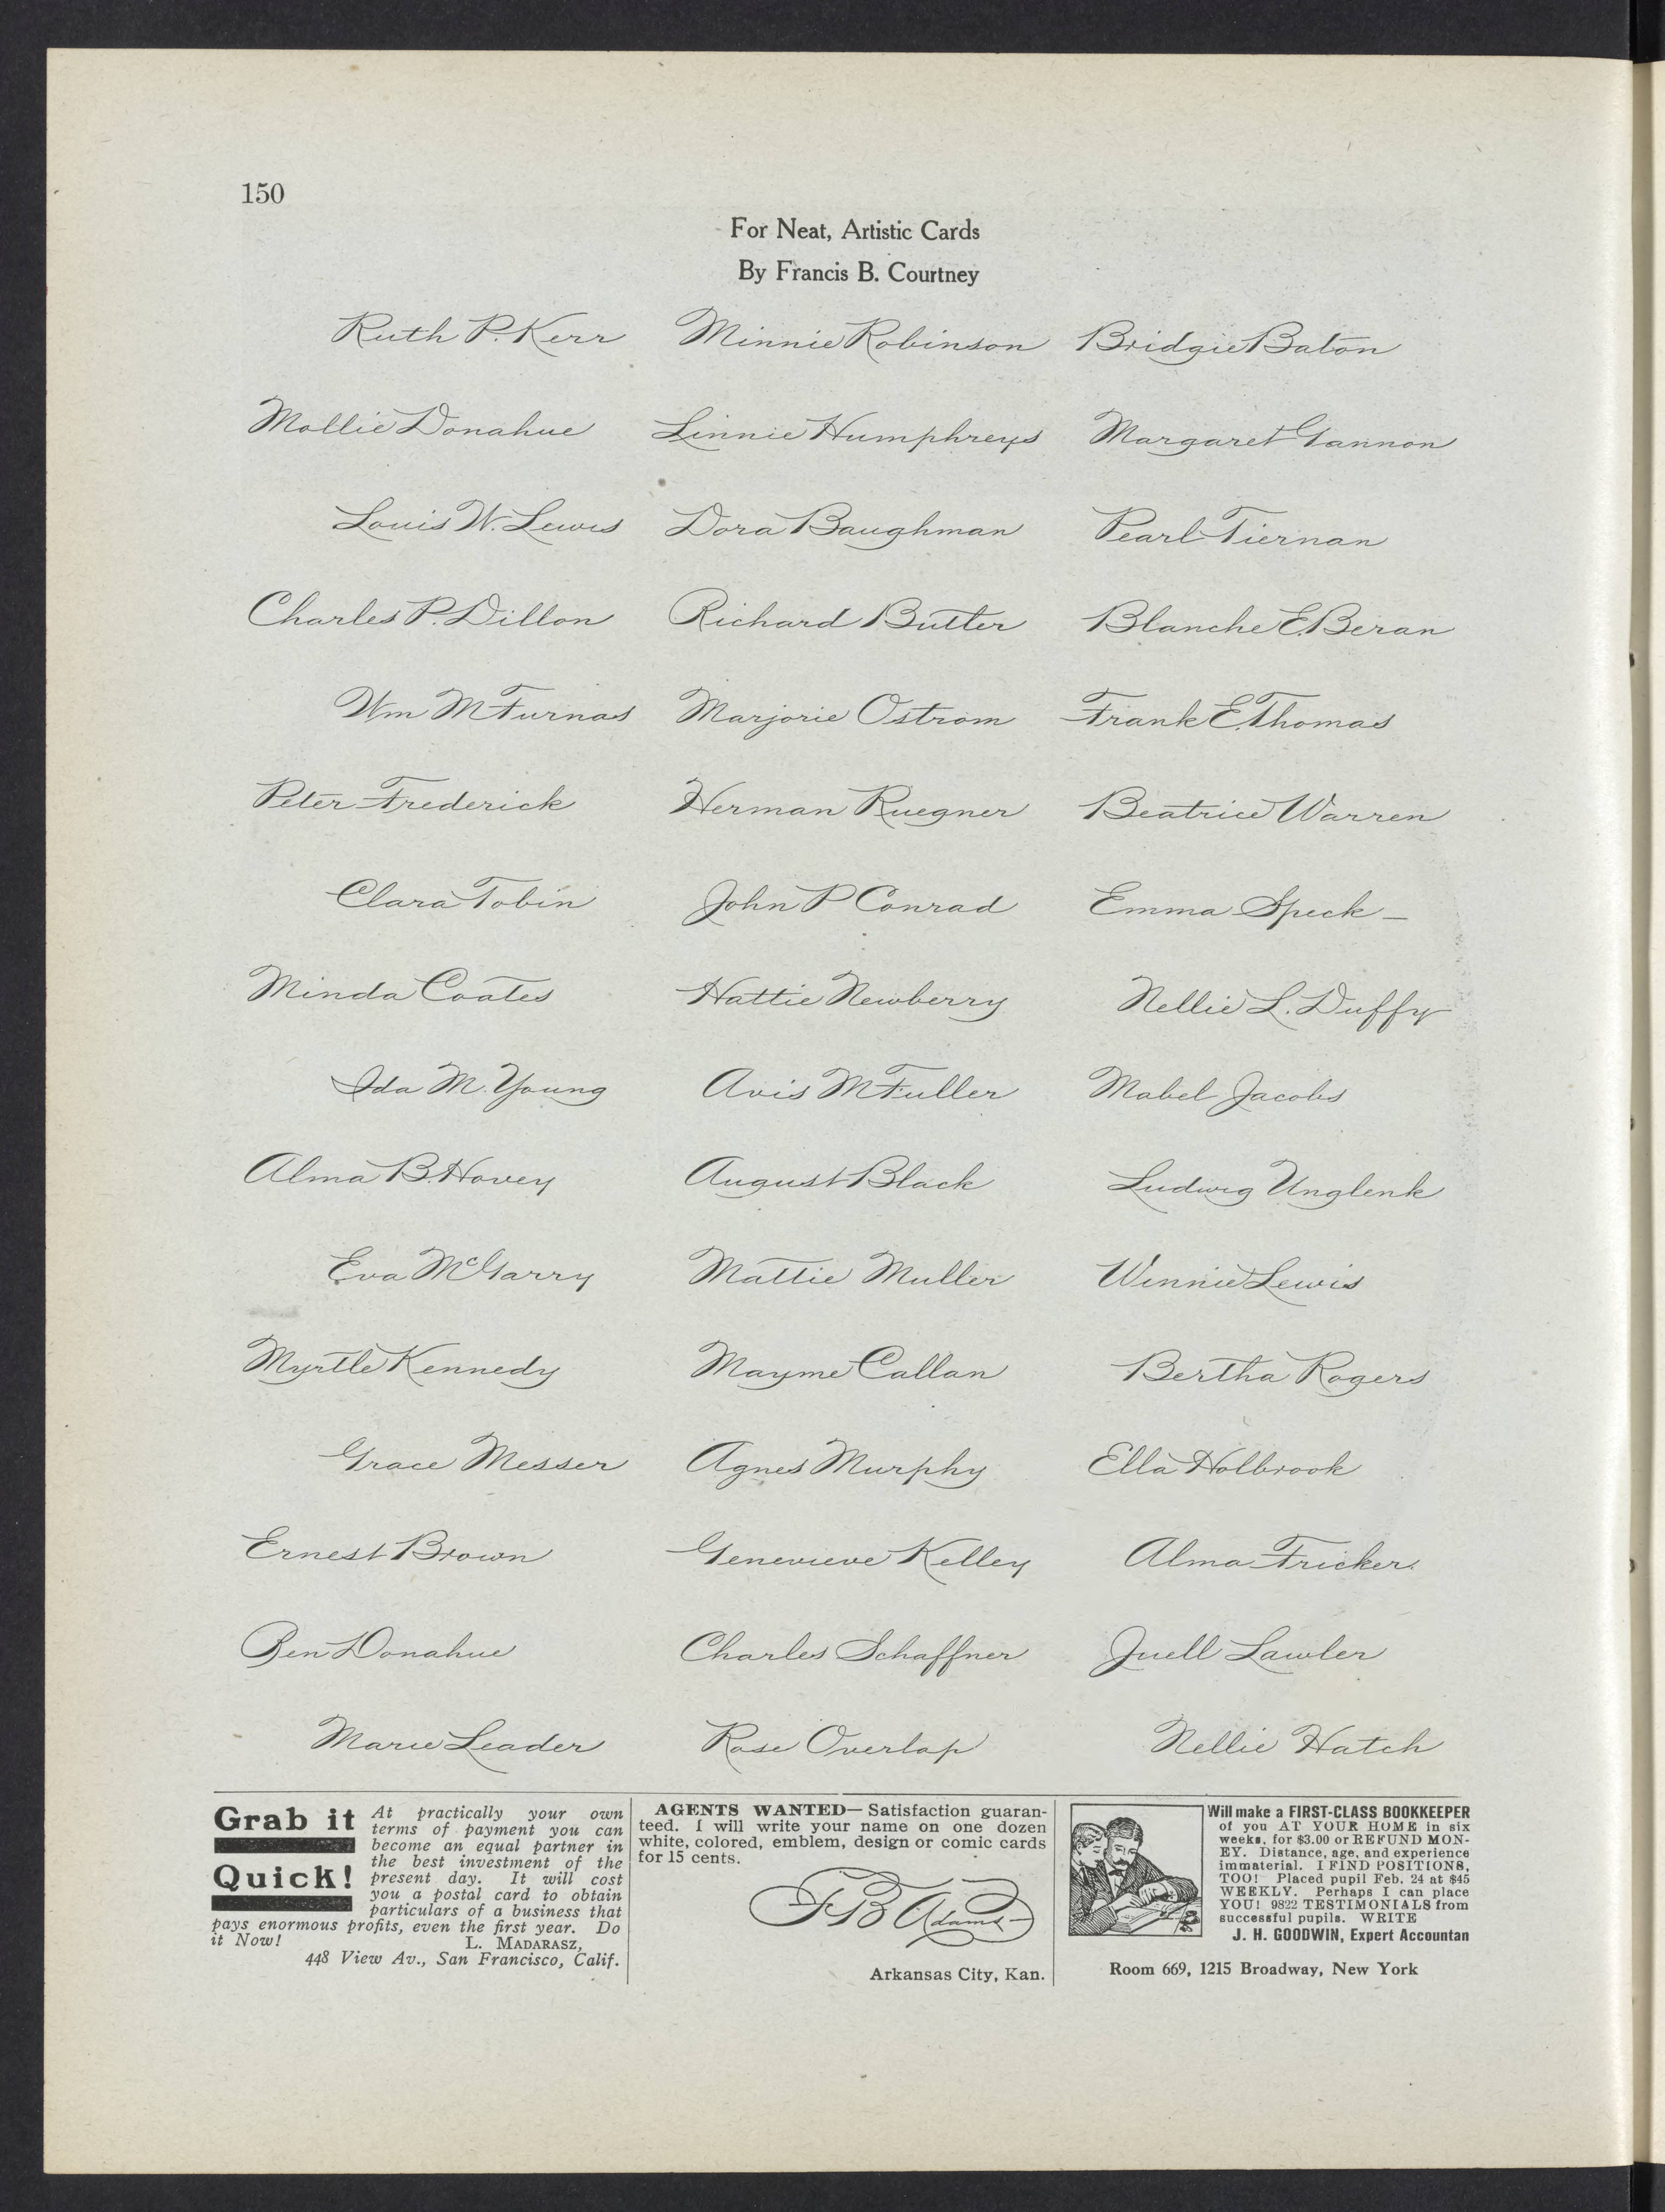 150
For Neat, Artistic Cards
By Francis B. Courtney
Ruth P. Kerr Minnie Robinson Bridgie Baton
Mollie Donahue Linnie Humphreys Margaret Gannon
Louis W. Lewis Dora Baughman Pearl Tiernan
Charles P. Dillon Richard Butler Blanche E. Beran
Wm M Furnas Marjorie Ostrom Frank E. Thomas
Peter Frederick Herman Ruegner Beatrice Warren
Clara Tobin John P Conrad Emma Speck
Minda Coates Hattie Newberry Nellie L. Duffy
Ida M. Young Avis M Fuller Mabel Jacobs
Alma B. Hovey August Black Ludwig Unglenk
Eva McGarry Mattie Muller Winnie Lewis
Myrtle Kennedy Mayme Callan Bertha Rogers
Grace Messer Agnes Murphy Ella Holbrook
Ernest Brown Genevieve Kelley Alma Fricker.
Ben Donahue Charles Schaffner Juell Lawler
Marie Leader Rose Overlap Nellie Hatch
Grab it
Quick!
At practically your own
terms of payment you can
become an equal partner in
the best investment of the
present day. It will cost
you a postal card to obtain
particulars of a business that
pays enormous profits, even the first year. Do
it Now! L. MADARASZ,
448 View Av., San Francisco, Calif.
AGENTS WANTED— Satisfaction guaran-
teed. I will write your name on one dozen
white, colored, emblem, design or comic cards
for 15 cents.
F B Adams
Arkansas City, Kan.
Will make a FIRST-CLASS BOOKKEEPER
of you AT YOUR HOME in six
weeks, for $3.00 or REFUND MON-
EY. Distance, age, and experience
immaterial. I FIND POSITIONS,
TOO! Placed pupil Feb. 24 at $45
WEEKLY. Perhaps I can place
YOU! 9822 TESTIMONIALS from
successful pupils. WRITE
J. H. GOODWIN, Expert Accountan
Room 669, 1215 Broadway, New York